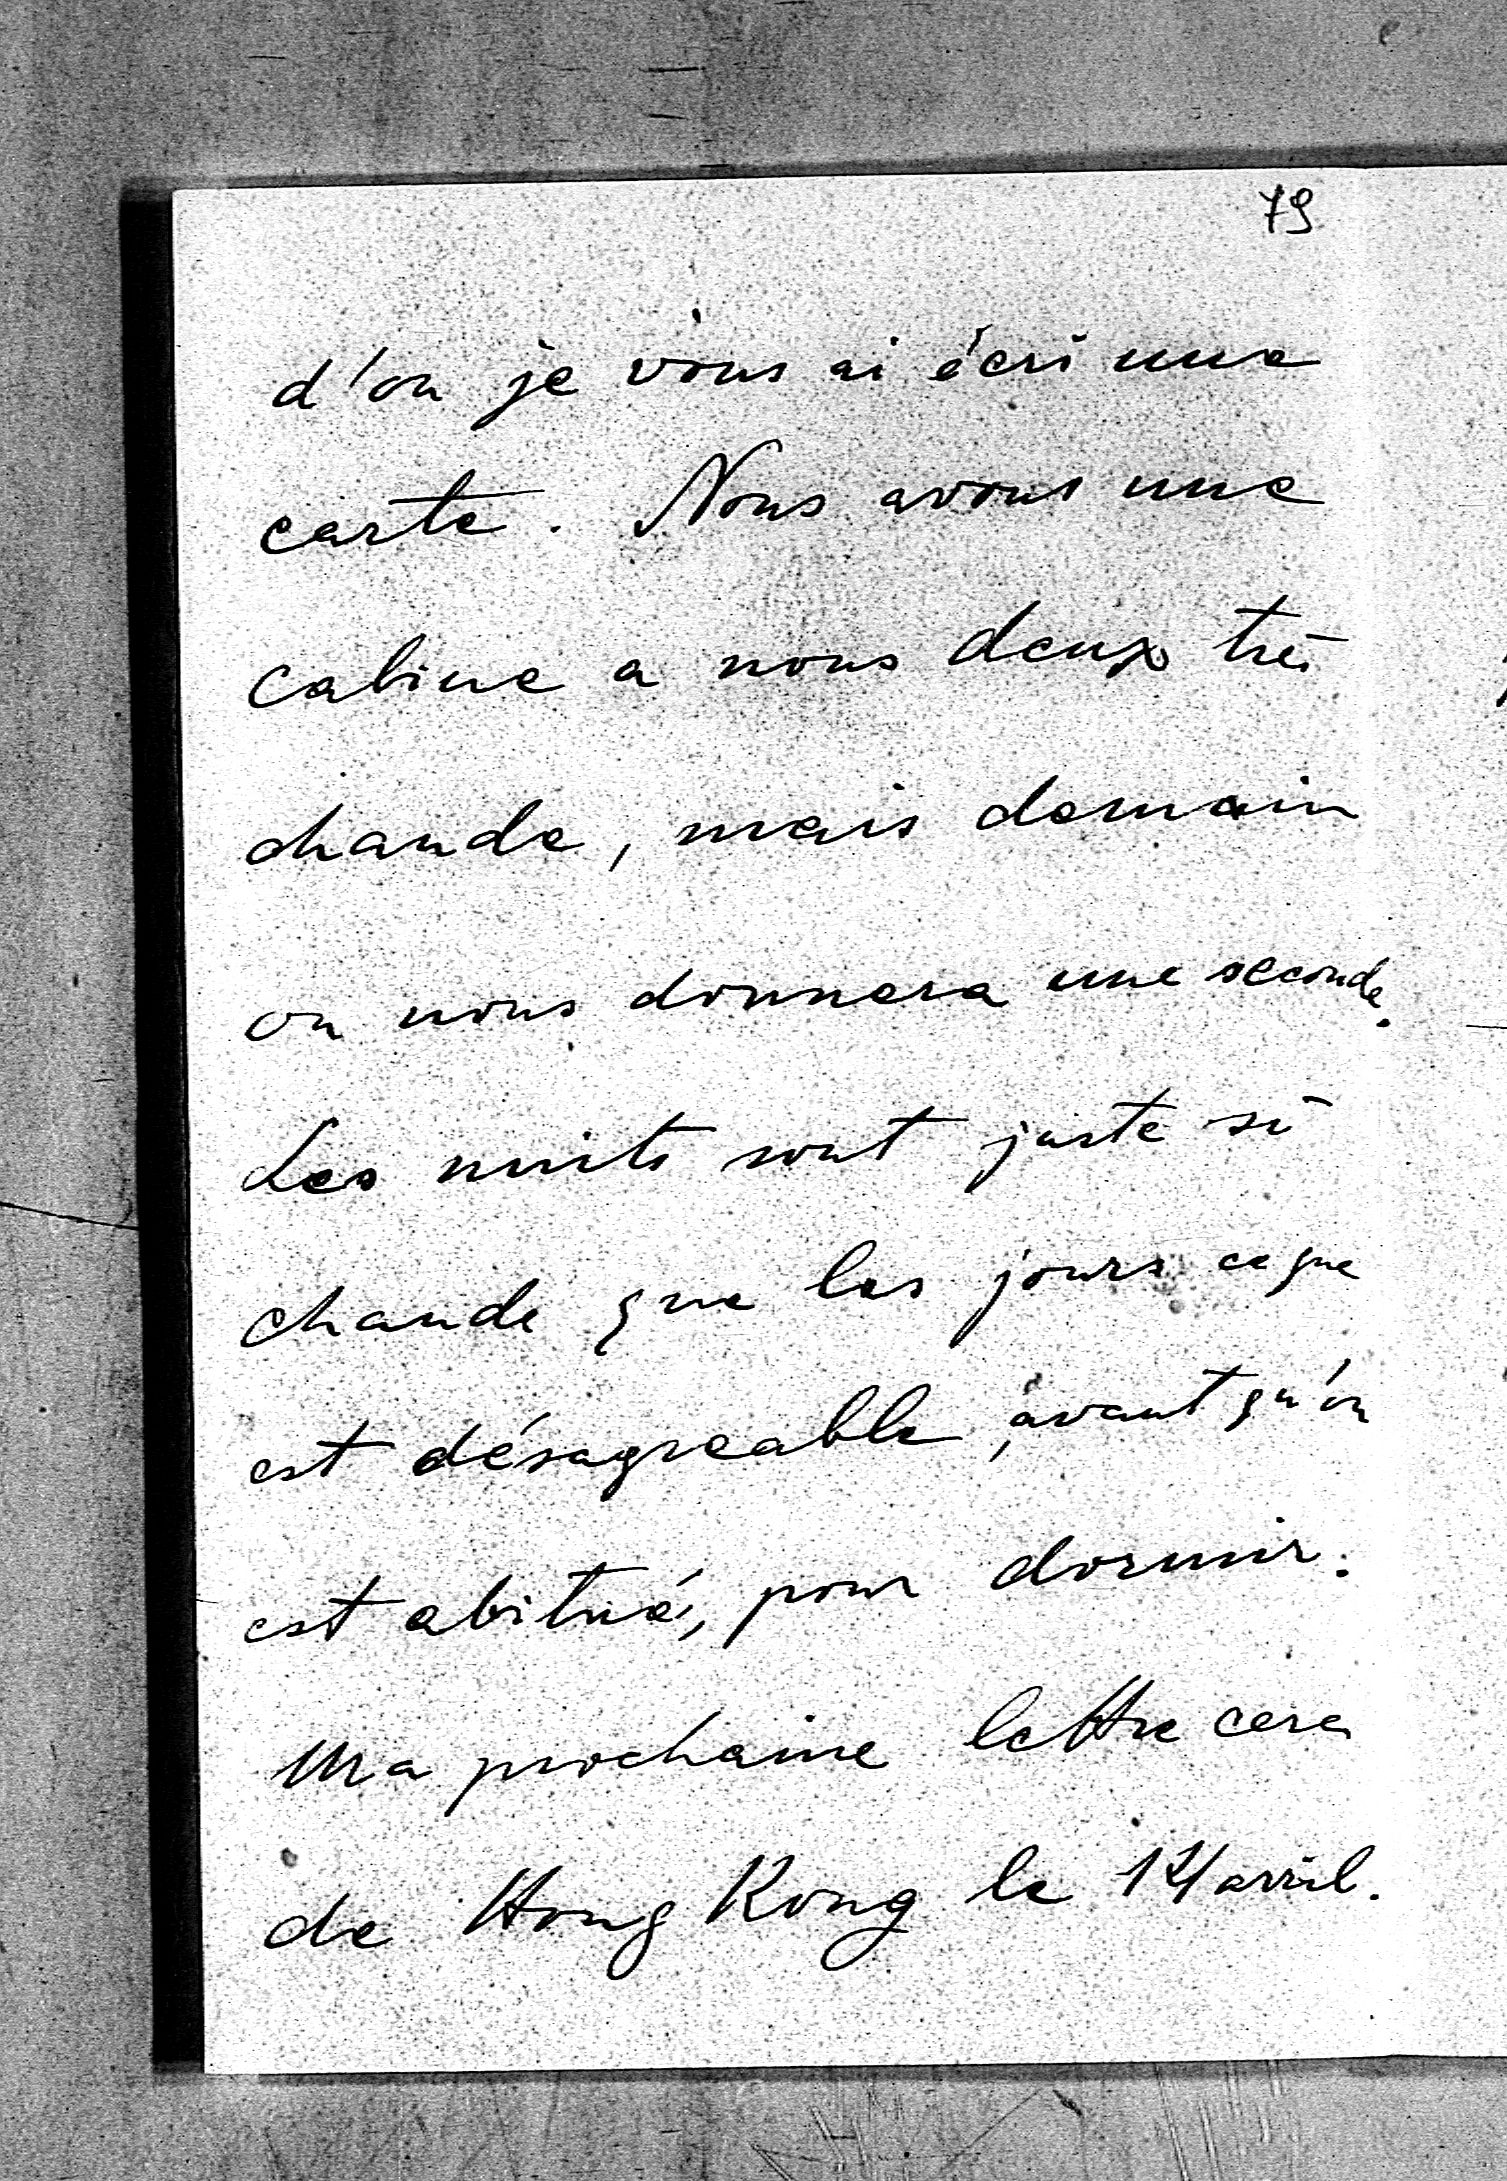 79
d'ou je vous ai écri une
carte. Nous avons une
cabine a nous deux très
chaude, mais demain
on nous donnera une seconde.
Les nuits sont juste si
chaude que les jours ce que
est désagreable, avant qu'on
est abitué, pour dormir.
Ma prochaine lettre cera
de Hong Kong le 14 avril.